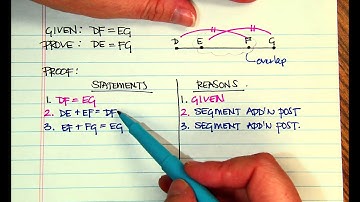 GIVEN: DF = EG
PROVE: DE = FG
D E F G
overlap
PROOF:
STATEMENTS REASONS
1. DF = EG 1. GIVEN
2. DE + EF = DF 2. SEGMENT ADD'N POST
3. EF + FG = EG 3. SEGMENT ADD'N POST.